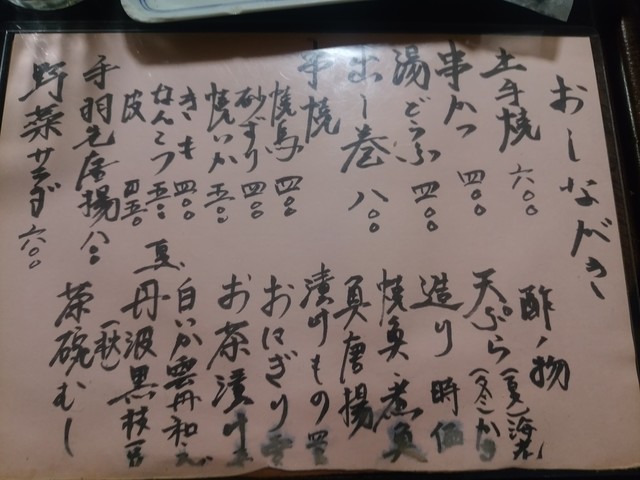 おしながき
土手焼 六〇〇
串かつ 四〇〇
湯どうふ 四〇〇
出し巻 八〇〇
平焼
焼鳥 四〇〇
砂ずり 四〇〇
焼いか 五〇〇
きも 四〇〇
なんこつ 五〇〇
皮 四五〇
手羽先唐揚 八〇〇
野菜サラダ 六〇〇
酢ノ物
天ぷら (夏)海老 (冬)かき
造り 時価
焼魚・煮魚
真唐揚
漬けもの
おにぎり
お茶漬け
白いか雲丹和え
夏 丹波黒枝豆
(秋)
茶碗むし